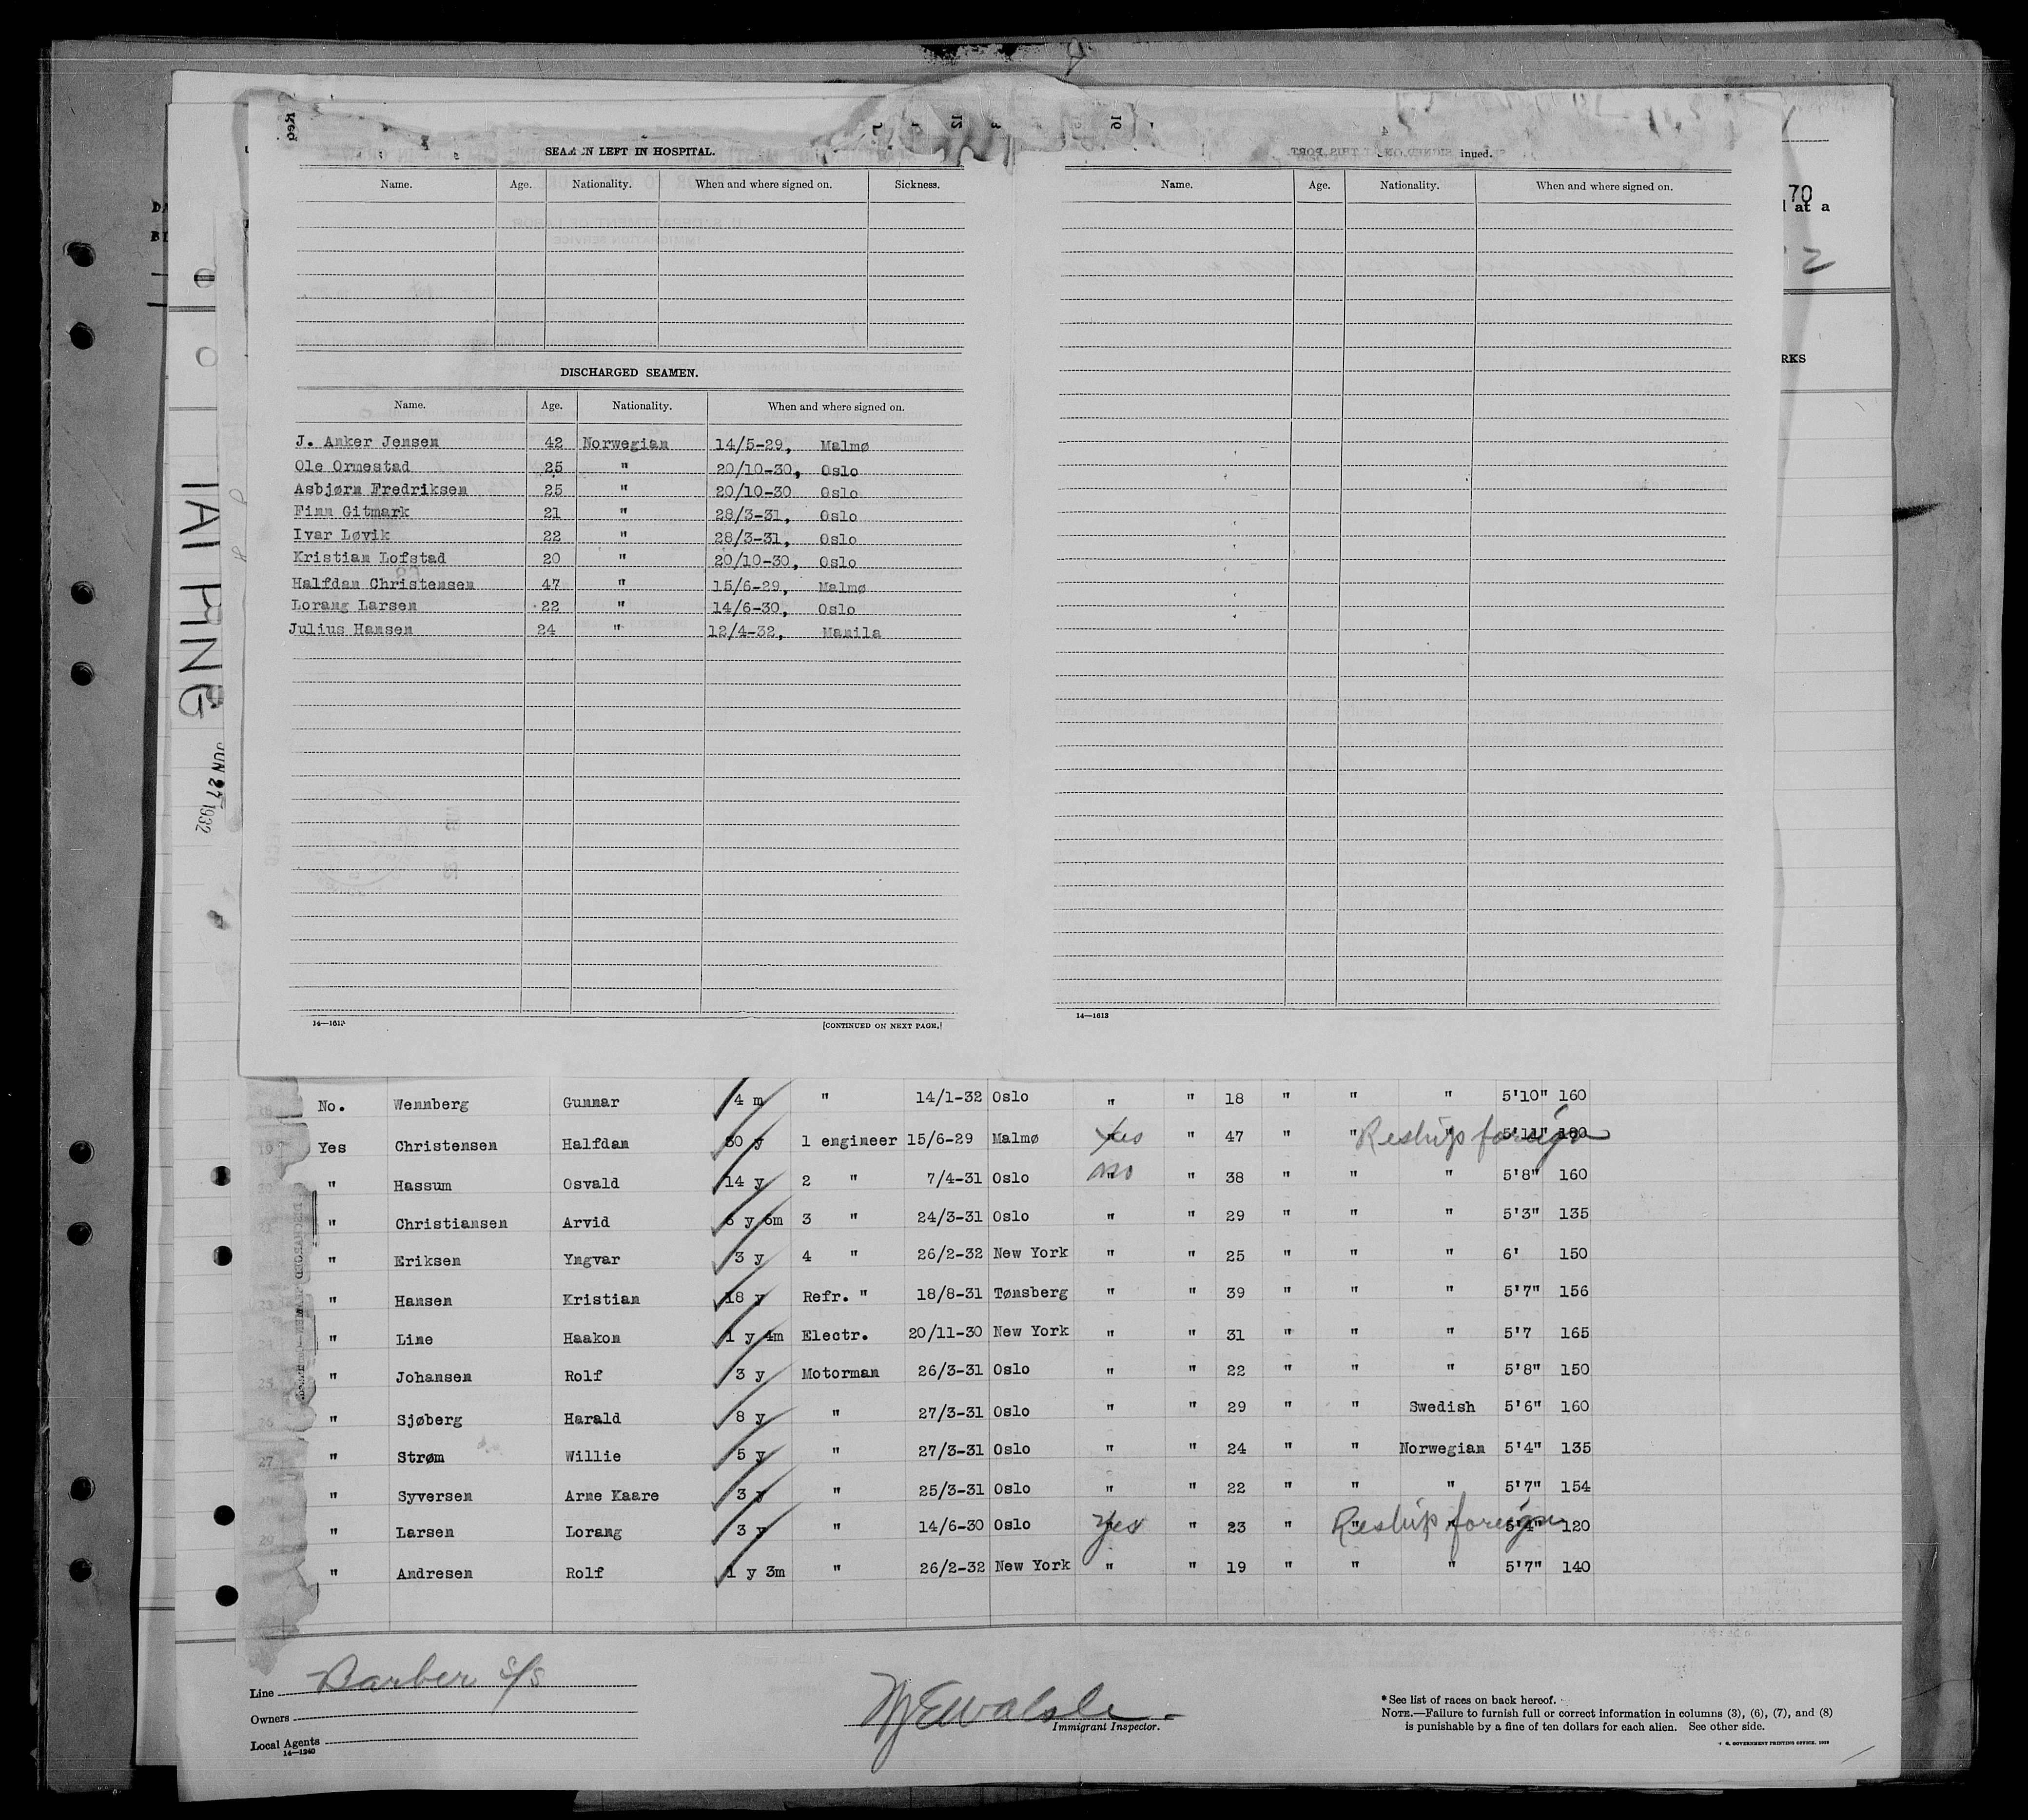 SEAMEN LEFT IN HOSPITAL.
Name. Age. Nationality. When and where signed on. Sickness.
DISCHARGED SEAMEN.
Name. Age. Nationality. When and where signed on.
J. Anker Jensen 42 Norwegian 14/5-29, Malmø
Ole Ormestad 25 " 20/10-30, Oslo
Asbjørn Fredriksen 25 " 20/10-30 Oslo
Finn Gitmark 21 " 28/3-31, Oslo
Ivar Løvik 22 " 28/3-31, Oslo
Kristian Lofstad 20 " 20/10-30, Oslo
Halfdan Christensen 47 " 15/6-29, Malmø
Lorang Larsen 22 " 14/6-30, Oslo
Julius Hansen 24 " 12/4-32, Manila
14—1613
[CONTINUED ON NEXT PAGE.]
inued.
Name. Age. Nationality. When and where signed on.
14—1613
70
at a
RKS
TAI PING
JUN 27 1932
No. Wennberg Gunnar 4 m " 14/1-32 Oslo " " 18 " " " 5'10" 160
19 Yes Christensen Halfdan 30 y 1 engineer 15/6-29 Malmø Yes " 47 " " Reship foreign 5'11" 180
" Hassum Osvald 14 y 2 " 7/4-31 Oslo no " 38 " " " 5'8" 160
" Christiansen Arvid 6 y 6m 3 " 24/3-31 Oslo " " 29 " " " 5'3" 135
" Eriksen Yngvar 3 y 4 " 26/2-32 New York " " 25 " " " 6' 150
" Hansen Kristian 18 y Refr. " 18/8-31 Tønsberg " " 39 " " " 5'7" 156
" Line Haakon 1 y 4m Electr. 20/11-30 New York " " 31 " " " 5'7 165
" Johansen Rolf 3 y Motorman 26/3-31 Oslo " " 22 " " " 5'8" 150
" Sjøberg Harald 8 y " 27/3-31 Oslo " " 29 " " Swedish 5'6" 160
27 " Strøm Willie 5 y " 27/3-31 Oslo " " 24 " " Norwegian 5'4" 135
" Syversen Arne Kaare 3 y " 25/3-31 Oslo " " 22 " " " 5'7" 154
" Larsen Lorang 3 y " 14/6-30 Oslo Yes " 23 " " Reship foreign 5'4" 120
" Andresen Rolf 1 y 3m " 26/2-32 New York " " 19 " " " 5'7" 140
Line Barber S/S
Owners
Local Agents
14—1240
Immigrant Inspector.
* See list of races on back hereof.
NOTE.—Failure to furnish full or correct information in columns (3), (6), (7), and (8)
is punishable by a fine of ten dollars for each alien. See other side.
GOVERNMENT PRINTING OFFICE. 1929